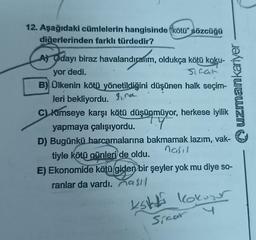 12. Aşağıdaki cümlelerin hangisinde "kötü" sözcüğü
diğerlerinden farklı türdedir?
A) Odayı biraz havalandıralım, oldukça kötü koku-
yor dedi.
sıfat
B) Ülkenin kötü yönetildiğini düşünen halk seçim-
leri bekliyordu.
C) Kimseye karşı kötü düşünmüyor, herkese iyilik
yapmaya çalışıyordu.
D) Bugünkü harcamalarına bakmamak lazım, vak-
nasıl
tiyle kötü günleri de oldu.
E) Ekonomide kötü giden bir şeyler yok mu diye so-
ranlar da vardı. nasıl
kötü kokuyor
uzmankariyer